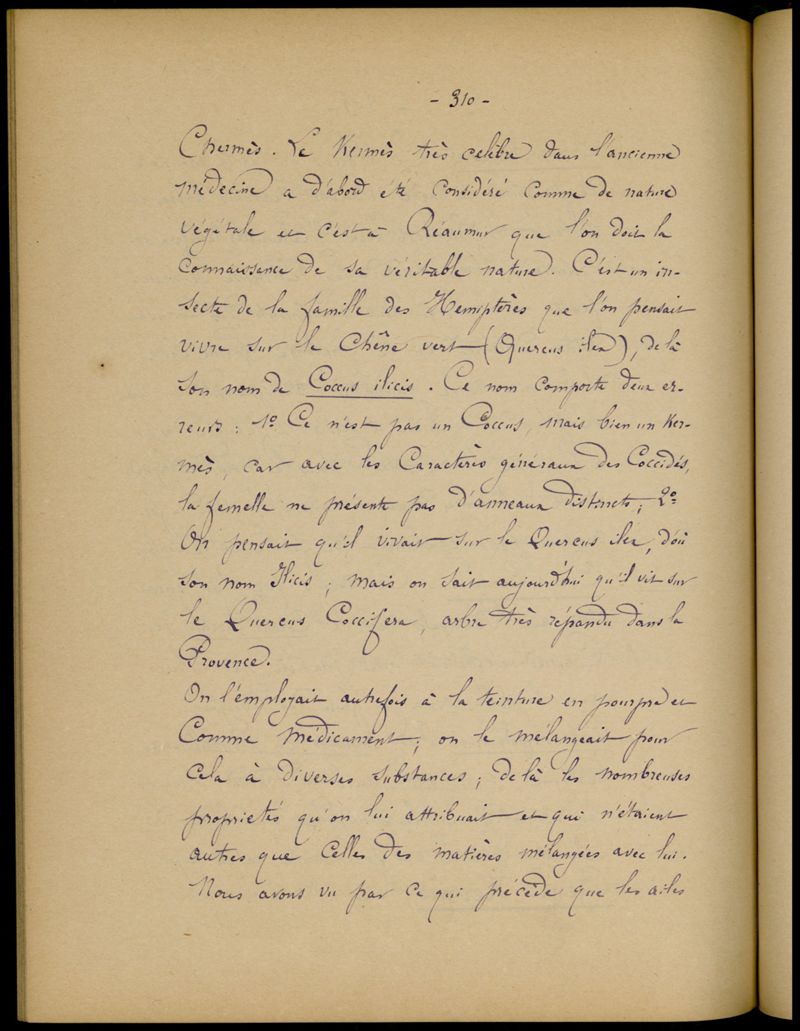 - 310 -
Chermès. Le Kermès très celèbre dans l'ancienne
médecine a d'abord été considéré comme de nature
végétale et c'est à Réaumur que l'on doit la
connaissance de sa véritable nature. C'est un in-
secte de la famille des Hémyptères que l'on pensait
vivre sur le Chêne vert (Quercus ilex), de là
son nom de Coccus ilicis. Ce nom comporte deux er-
reurs : 1º Ce n'est pas un Coccus, mais bien un Ker-
mès, car avec les Caractères généraux des Coccidés,
la femelle ne présente pas d'anneaux distincts ; 2º
On pensait qu'il vivait sur le Quercus ilex, d'où
son nom Ilicis ; mais on sait aujourd'hui qu'il vit sur
le Quercus Coccifera, arbre très répandu dans la
Provence.
On l'employait autrefois à la teinture en pourpre et
Comme médicament ; on le mélangeait pour
cela à diverses substances ; de là les nombreuses
proprietés qu'on lui attribuait et qui n'étaient
autres que celles des matières mélangées avec lui.
Nous avons vu par ce qui précède que les ailes